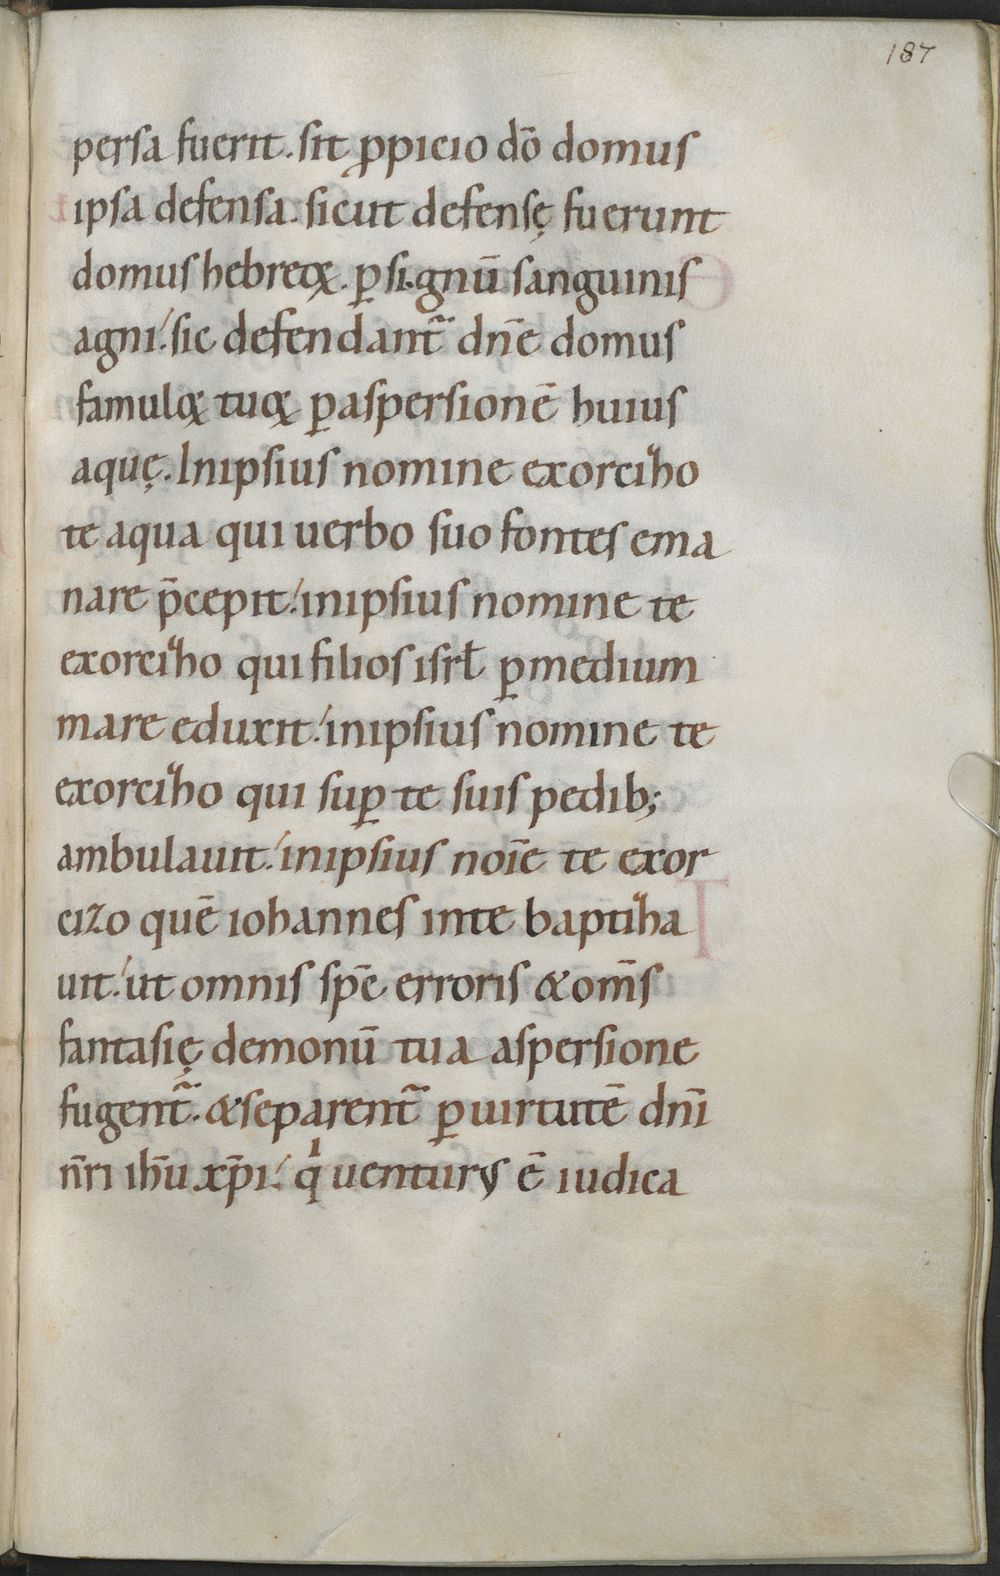 187
persa fuerit. sit ꝓpicio dō domus
ipsa defensa. sicut defensę fuerunt
domus hebreoꝝ. ꝑ signū sanguinis
agni. sic defendant᷑ dn̄e domus
famuloꝝ tuoꝝ ꝑ aspersionē huius
aquę. In ipsius nomine exorcizo
te aqua qui uerbo suo fontes ema
nare p̄cepit. in ipsius nomine te
exorcizo qui filios isrl̄ ꝑ medium
mare eduxit. in ipsius nomine te
exorcizo qui suꝑ te suis pedib;
ambulauit. in ipsius noīe te exor
cizo quē iohannes in te baptiza
uit. ut omnis spēc erroris & om̄s
fantasię demonū tua aspersione
fugent᷑. & separent᷑ ꝑ uirtutē dn̄i
n̄ri ih̄u xp̄i. qͥ uenturus ē iudica